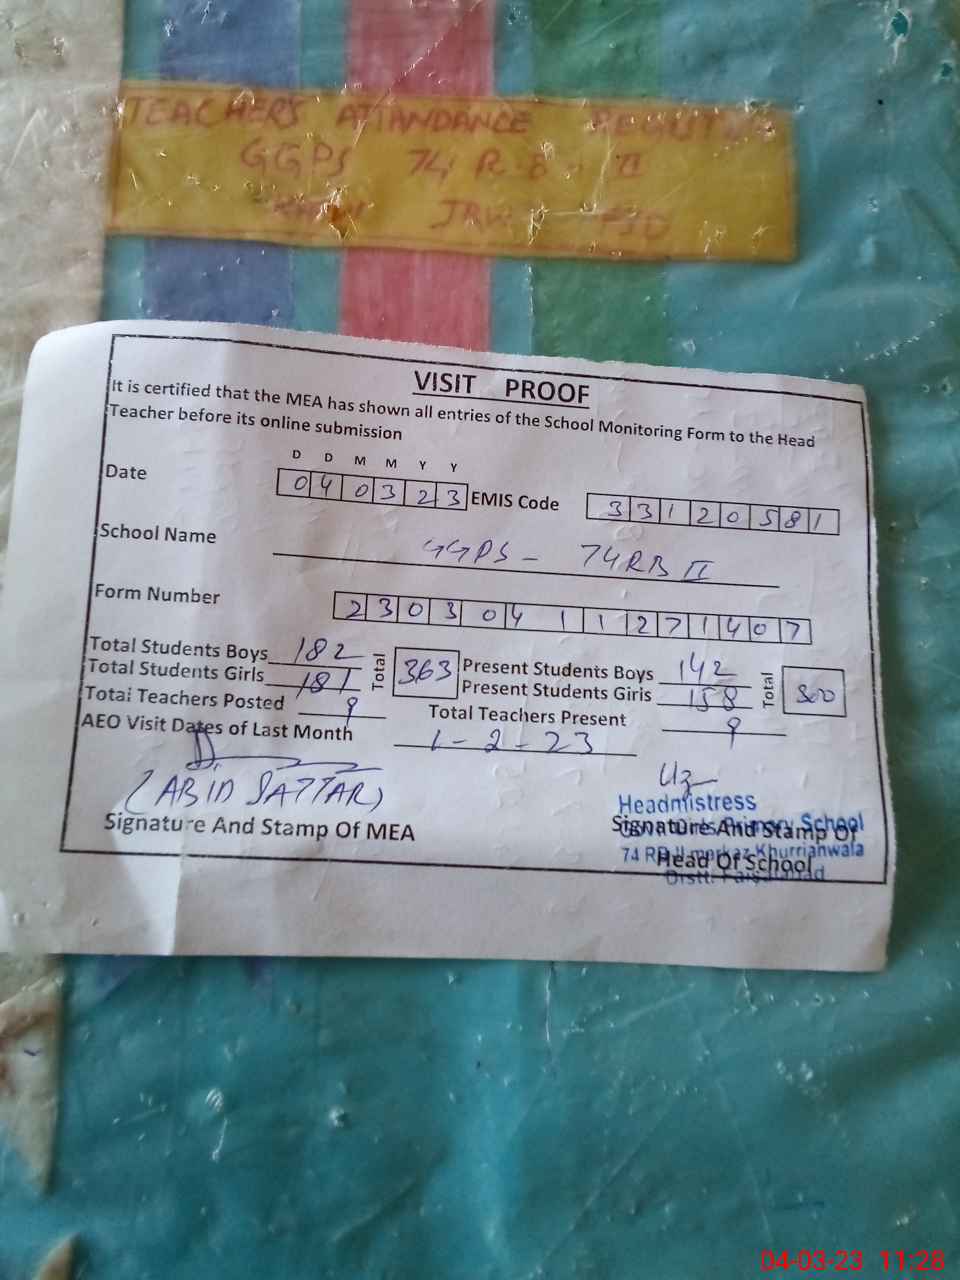 TEACHER'S ATTANDANCE REGISTER
GGPS 74 R-B - II
JRW FSD
VISIT PROOF
It is certified that the MEA has shown all entries of the School Monitoring Form to the Head
Teacher before its online submission
D D M M Y Y
Date 040323 EMIS Code 33120581
School Name GGPS - 74RB II
Form Number 230304 11271407
Total Students Boys 182 Total 363 Present Students Boys 142 Total 300
Total Students Girls 181 Present Students Girls 158
Total Teachers Posted 9 Total Teachers Present 9
AEO Visit Dates of Last Month 1-2-23
(ABID SATTAR)
Signature And Stamp Of MEA
Headmistress
Signature And Stamp Of
Girls Primary School
74 RB II markaz Khurrianwala
Head Of School
Distt. Faisalabad
04-03-23 11:28